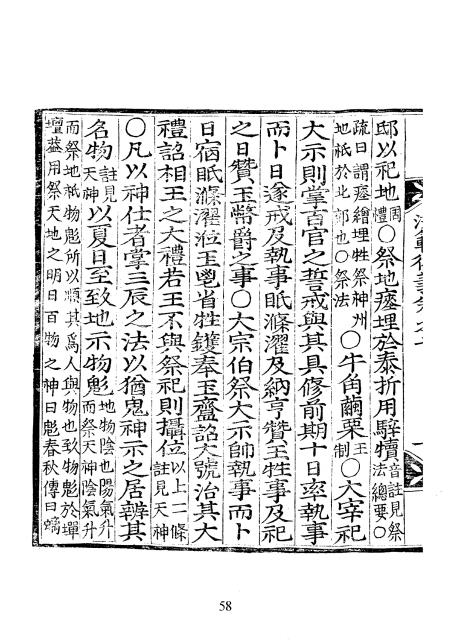 邸以祀地周禮○祭地瘞埋於泰折用騂犢音註見祭法總要○
疏曰謂瘞繒埋牲祭神州地祇於北郊也○祭法○牛角繭栗王制○大宰祀
大示則掌百官之誓戒與其具修前期十日率執事
而卜日遂戒及執事眂滌濯及納亨贊王牲事及祀
之日贊玉幣爵之事○大宗伯祭大示帥執事而卜
日宿眂滌濯涖玉鬯省牲鑊奉玉齍詔大號治其大
禮詔相王之大禮若王不與祭祀則攝位以上一條註見天神
○凡以神仕者掌三辰之法以猶鬼神示之居辨其
名物註見天神以夏日至致地示物鬽地物陰也陽氣升而祭天神陰氣升
而祭地祇物鬽所以順其爲人與物也致物鬽於墠
壇蓋用祭天地之明日百物之神曰鬽春秋傳曰螭
58